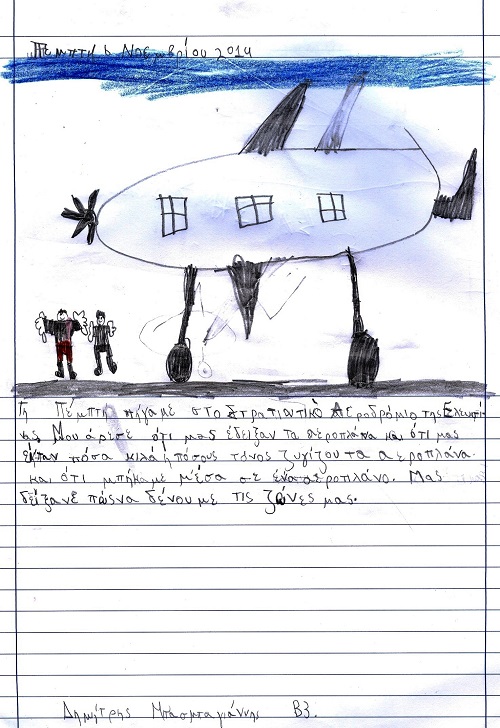 Πέμπτη 6 Νοεμβρίου 2014
Τη Πέμπτη πήγαμε στο Στρατιωτικό Αεροδρόμιο της Ελευσί-
νας. Μου άρεσε ότι μας έδειξαν τα αεροπλάνα και ότι μας
είπαν πόσα κιλά ή πόσους τόνος ζυγίζου τα αεροπλάνα.
και ότι μπήκαμε μέσα σε ένα αεροπλάνο. Μας
δείξανε πώς να δένουμε τις ζώνες μας.
Δημήτρης Μπασμπαγιάννης Β3.